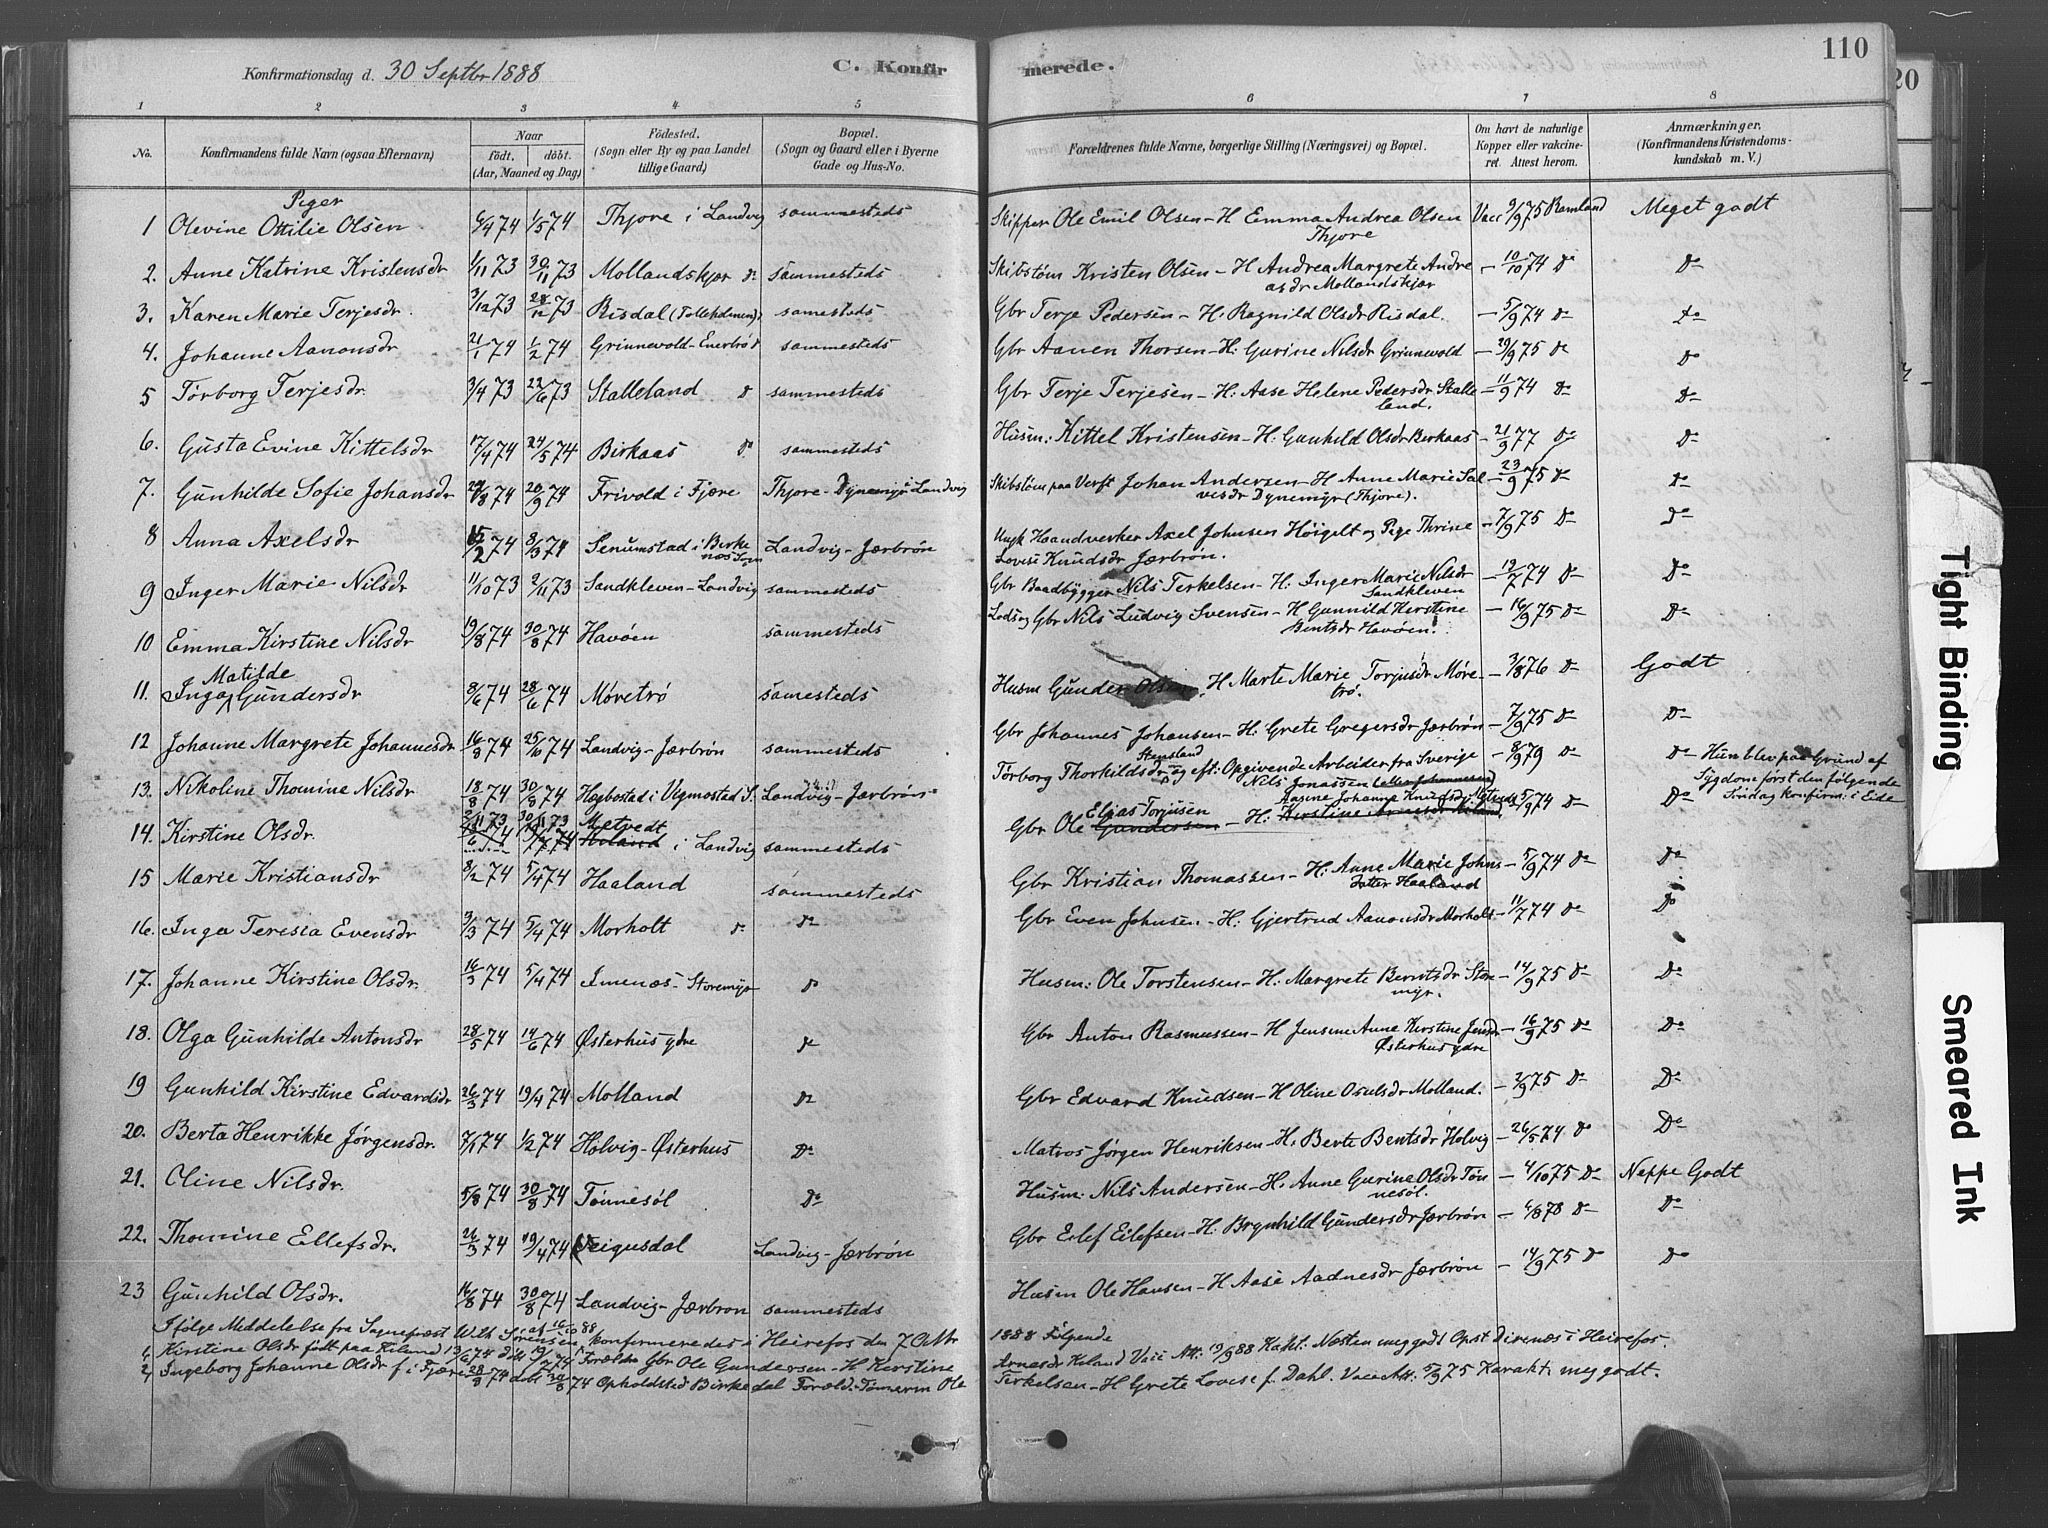 110
20
Konfirmationsdag d. 30 Septbr 1888
C. Konfir
merede.
1 2 3 4 5 6 7 8
No. Konfirmandens fulde Navn (ogsaa Efternavn)
Naar
födt. döbt.
(Aar, Maaned og Dag)
Födested.
(Sogn eller By og paa Landet
tillige Gaard)
Bopæl.
(Sogn og Gaard eller i Byerne
Gade og Hus-No.
Forældrenes fulde Navne, borgerlige Stilling (Næringsvei) og Bopæl.
Om havt de naturlige
Kopper eller vakcine-
ret. Attest herom.
Anmærkninger.
(Konfirmandens Kristendoms-
kundskab m. V.)
Piger
1 Olevine Ottilie Olsen 6/4 74 1/5 74 Thjore i Landvig sammesteds Skipper Ole Emil Olsen - H Emma Andrea Olsen Vacc 9/9 75 Ramland Meget godt
Thjore
2. Anne Katrine Kristensdr 1/11 73 30/11 73 Mollandskjær do sammesteds Skibstøm Kristen Olsen - H. Andrea Margrete Andre - 10/10 74 Do Do
asdr Mollandskjær
3. Karen Marie Terjesdr. 3/12 73 28/12 73 Risdal sammesteds Gbr Terje Pedersen - H: Ragnild Olsdr Risdal. - 5/9 74 Do Do
4. Johanne Aanonsdr 21/1 74 1/2 74 Grinnevold - sammesteds Gbr Aanen Thorsen - H: Gurine Nilsdr Grinnevold - 29/9 75 Do Do
5 Torborg Terjesdr. 3/4 73 22/6 73 Stalleland do sammesteds Gbr Terje Terjesen - H: Aase Helene Pedersdr Stalle - 11/9 74 Do Do
land.
6. Gusta Evine Kittelsdr 17/4 74 24/5 74 Birkaas do sammesteds Husm: Kittel Kristensen - H. Gunhild Olsdr Berkaas - 21/9 77 Do Do
7. Gunhilde Sofie Johansdr 29/8 74 20/9 74 Frivold i Fjære Thjore - Dynemyr Landvig Skibstøm paa Verft Johan Andersen - H Anne Marie Sal - 23/9 75 Do Do
vesdr Dynemyr (Thjore).
8 Anna Axelsdr 15/2 74 8/3 74 Senumstad i Birke Landvig - Jærbrøn Ungk Haandverker Axel Johnsen Høigelt og Pige Thrine - 7/9 75 Do Do
næs Sogn Lovise Knudsdr Jærbrøn.
9 Inger Marie Nilsdr 11/10 73 2/11 73 Sandkleven - Landvig sammesteds Gbr Baadbygger Nils Terkelsen - H. Inger Marie Nilsdr - 19/7 74 Do Do
Sandkleven
10 Emma Kirstine Nilsdr 19/8 74 30/8 74 Havøen sammesteds Lods og Gbr Nils Ludvig Svensen - H Gunnild Kirstine - 16/9 75 Do Do
Bentsdr Havøen.
Matilde
11. Inga Gundersdr 8/6 74 28/6 74 Møretrø sammesteds Husm Gunder Olsen. H Marte Marie Torjusdr Møre- - 3/8 76 Do Godt
trø.
12 Johanne Margrete Johannesdr 16/8 74 25/10 74 Landvig - Jærbrøn sammesteds Gbr Johannes Johansen - H: Grete Gregersdr Jærbrøn - 7/9 75 Do Do
13. Nikoline Thomine Nilsdr 18/8 74 30/8 74 Hægbostad i Vegmostad S. Landvig - Jærbrøn Torborg Thorkildsdr Stensland og eft: Opgivende Arbeider fra Sverige - 8/9 79 Do Do Hun blev paa Grund af
Nils Jonassen (eller Johannesen) Sygdom først den følgende
Søndag konfirm: i Eide
14. Kirstine Olsdr. 2/11 73 30/11 73 Metvedt i Landvig sammesteds Gbr Ole Elias Torjusen - H: Aasine Johanne Knudsdr - 5/9 74 Do Do
15 Marie Kristiansdr 8/2 74 5/4 74 Haaland sammesteds Gbr Kristian Thomassen - H: Anne Marie Johns - 5/9 74 Do Do
datter Haaland
16. Inga Teresia Evensdr 3/3 74 5/4 74 Morholt do do Gbr Even Johnsen - H: Gjertrud Aanonsdr Morholt - 11/7 74 Do Do
17. Johanne Kirstine Olsdr. 16/3 74 5/4 74 Imenes - Storemyr do Husm: Ole Torstensen - H: Margrete Berntsdr Store - 14/9 75 Do Do
myr.
18. Olga Gunhilde Antonsdr 28/5 74 14/6 74 Østerhus ydre do Gbr Anton Rasmussen - H Jensine Anne Kirstine Jensdr - 16/9 75 Do Do
Østerhus ydre
19 Gunhild Kirstine Edvardsdr 26/3 74 19/4 74 Molland do Gbr Edvard Knudsen - H Oline Osulsdr Molland. - 2/9 75 Do Do
20. Berta Henrikke Jørgensdr. 7/1 74 1/2 74 Holvig - Østerhus Do Matros Jørgen Henriksen - H: Berte Bentsdr Holvig - 26/5 74 Do Do
21. Oline Nilsdr. 5/8 74 30/8 74 Tønnesøl Do Husm: Nils Andersen - H: Anne Gurine Olsdr Tøn - 4/10 75 Do Neppe Godt
nesøl.
22. Thomine Ellefsdr. 26/3 74 19/4 74 Veigusdal Landvig - Jærbrøn Gbr Eilef Eilefsen - H: Brynhild Gundersdr Jærbrøn - 4/8 78 Do Do
23 Gunhild Olsdr. 16/8 74 30/8 74 Landvig - Jærbrøn sammesteds Husm Ole Hansen - H Aase Aadnesdr Jærbrøn - 14/9 75 Do Do
Ifølge Meddelelse fra Sognepræst Wilh Sørensen af 16/10 88 konfirmeredes i Heirefos den 7 Oktbr 1888 Følgende
1, Kirstine Olsdr født paa Kiland 13/6 74 døbt 19/7 74 Forældre Gbr Ole Gundersen - H Kirstine Arnesdr Kiland Vacc Att: 19/9 88 Kakt: Næsten meg godt Opst Direnæs i Heirefos.
2, Ingeborg Johanne Olsdr f. i Fjære 74 døbt 30/8 74 Opholdsted Birkedal Foræld. Tømerm Ole Terkelsen - H Grete Lovise f. Dahl. Vacc Att: 5/9 75 Karakt: meg godt.
Tight Binding
Smeared Ink